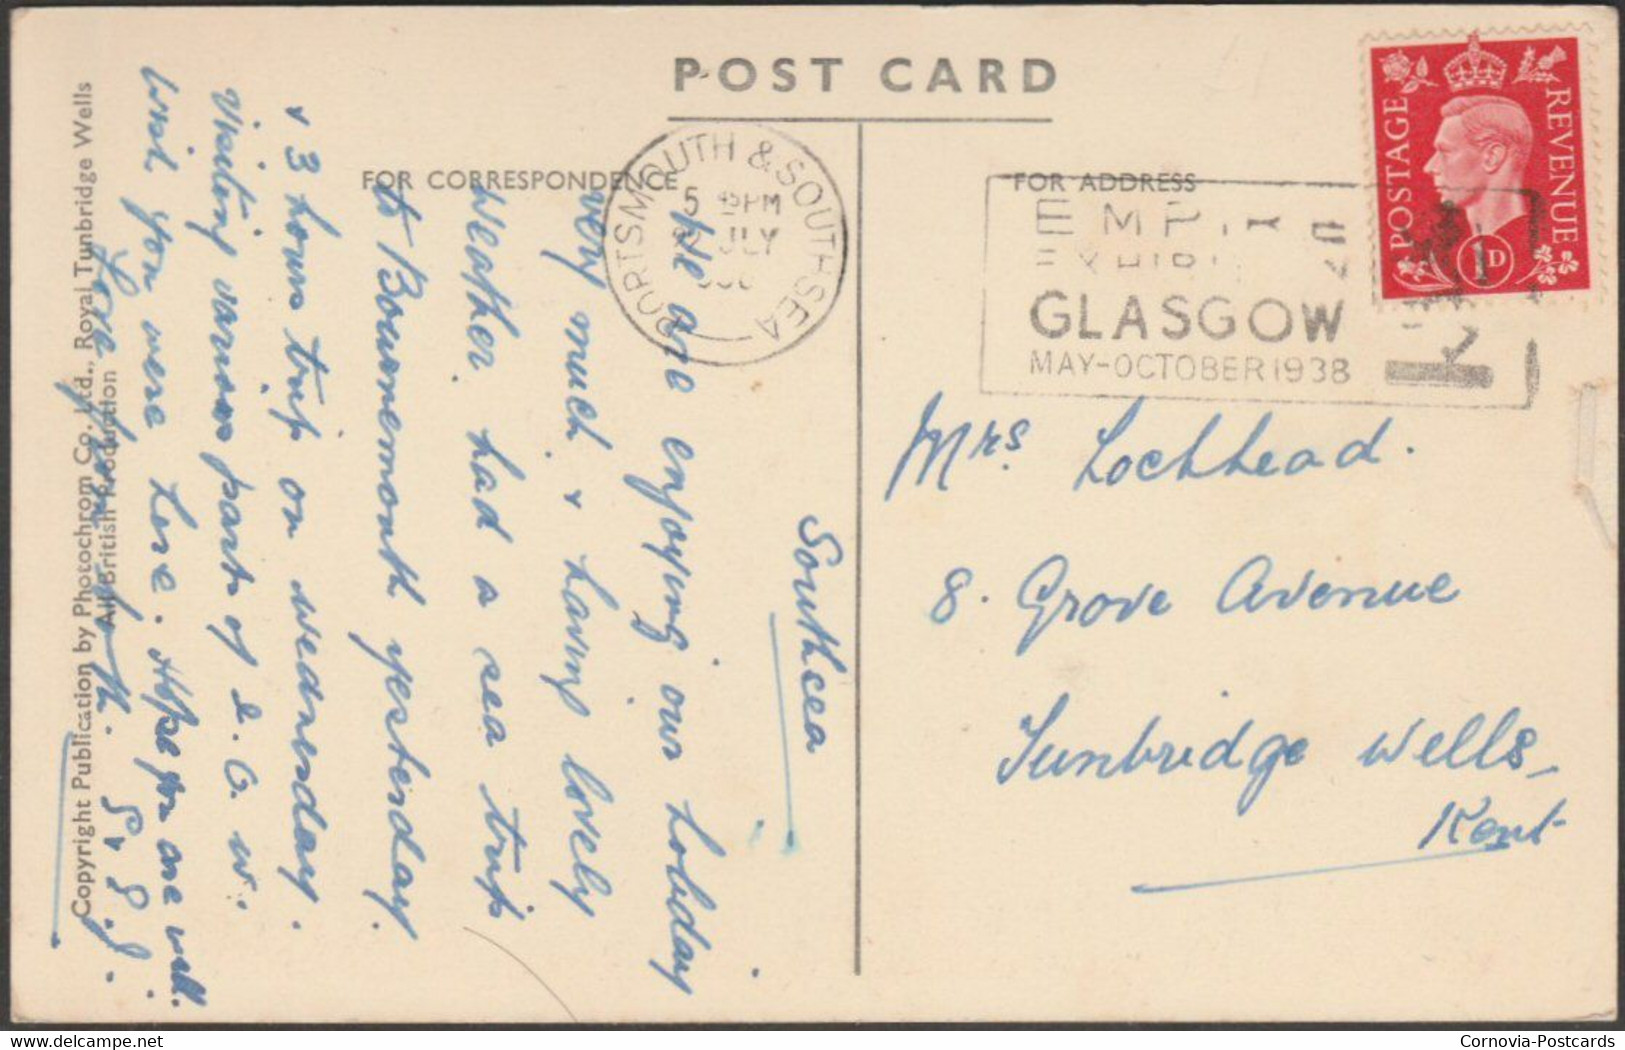 POST CARD
FOR CORRESPONDENCE
FOR ADDRESS
PORTSMOUTH & SOUTHSEA
5 PM
JLY
GLASGOW
MAY-OCTOBER 1938
POSTAGE
REVENUE
1D
Mrs Lochhead.
8. Grove Avenue
Tunbridge Wells,
Kent
Southsea
We are enjoying our holiday
very much & having lovely
weather. had a sea trip
to Bournemouth yesterday.
& 3 hours trip on wednesday.
Visiting various parts of I. O. W.
Wish you were here. Hope you are well.
Love from
Copyright Publication by Photochrom Co. Ltd., Royal Tunbridge Wells
All British Production
Cornovia-Postcards
www.delcampe.net